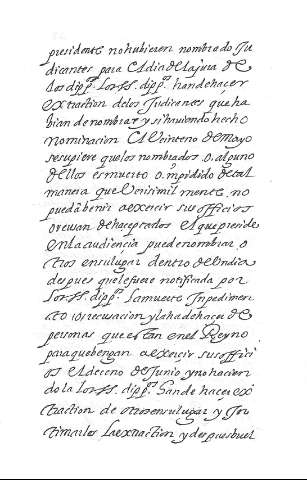 presidente no hubieren nombrado Ju
dicantes para el dia de la jura de
los dipp.s los SS. dipp.s han de hacer
extraction de los Judicantes que ha
bian de nombrar y si haviendo hecho
nominacion el Veinteno de Mayo
se supiere que los nombrados o alguno
de ellos es muerto o impidido de tal
manera que Verisimilmente no
pueda benir a exercir sus officios
o rexusan de haceptados el que preside
en la audiencia puede nombrar o
tros en su lugar dentro de Un dia
despues que le fuere notificada por
los SS. dipp.s la muerte Inpedimen
to o recusacion y la ha de hacer de
personas que estan en el Reyno
para que bengan a exercir sus offici
os el dezeno de Junio y no hacien
dola los SS. dipp.s han de hacer ex
traction de otros en su lugar y
timarlos la extraction y despues